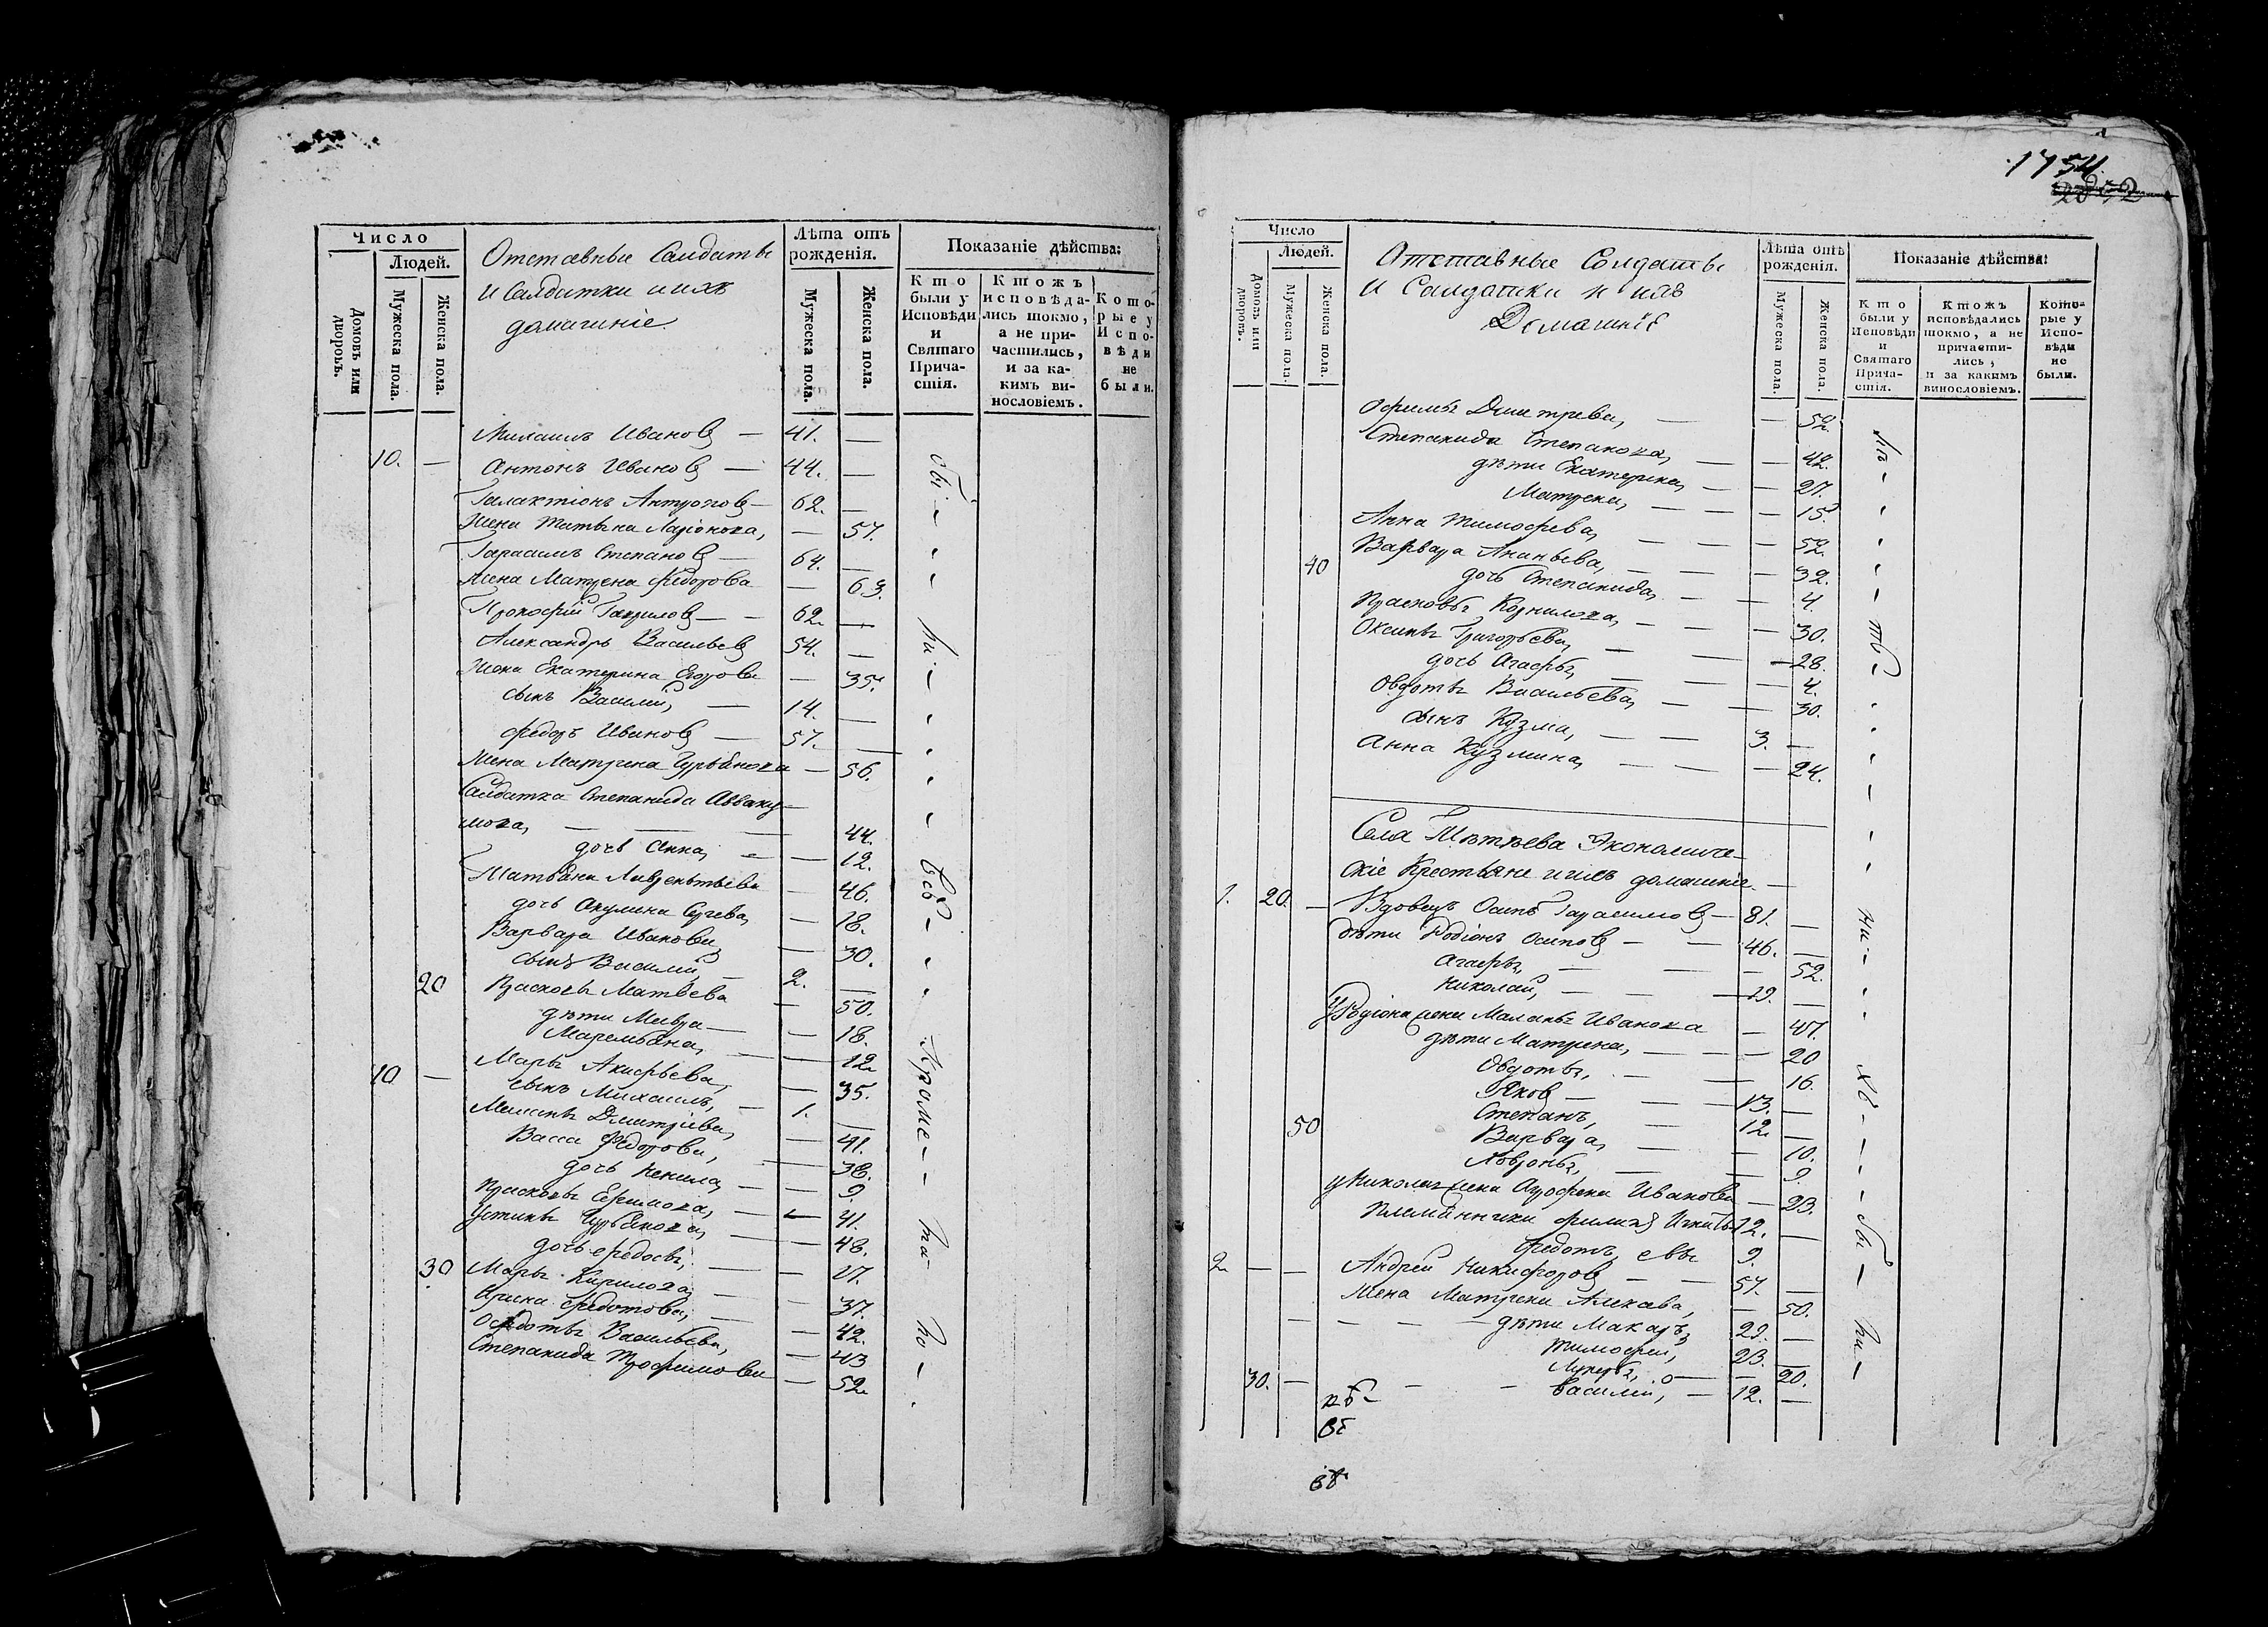 Число
Людей.
Домовъ или дворовъ.
Мужеска пола.
Женска пола.
Отставные Салдаты
и Салдатки и ихъ
домашніе
Лѣта отъ рожденія.
Мужеска пола.
Женска пола.
Показаніе дѣйства:
Кто были у Исповѣди и Святаго Причастія.
Ктожъ исповѣдались токмо, а не причастились, и за какимъ винословіемъ.
Которые у Исповѣди не были.
Михаилъ Ивановъ — 41. —
10. — Антонъ Ивановъ — 44. —
Галактіонъ Антроповъ — 62. —
жена Татьяна Ларіонова, — 57.
Гарасимъ Степановъ — 64. —
жена Матрена Федорова — 63.
Прокофій Гавриловъ — 62 —
Александръ Васильевъ 54. —
жена Екатерина Егорова — 35.
сынъ Василій, — 14. —
Федоръ Ивановъ — 57. —
жена Матрена Гурьянова — 56.
Салдатка Степанида Аввакумова, — 44.
дочь Анна, — 12.
Татьяна Лаврентьева — 46.
дочь Акулина — 18.
Варвара Иванова — 30.
сынъ Василій, — 2. —
20 Прасковья Матвѣева — 50.
дѣти Мавра — 18.
Маремьяна, — 12
Марья Акифьева, — 35.
10 — сынъ Михаилъ, — 1. —
Меланья Дмитріева, — 41.
Васса Федорова, — 38.
дочь Ненила, — 9.
Прасковья Ефимова, — 41.
Устинья Гурьянова, — 48.
дочь Федосья, — 17.
30 Марья Кирилова, — 37.
Ирина Федотова, — 42.
Васильева, — 43
Степанида Трофимова — 52
1754.
Число
Людей.
Домовъ или дворовъ.
Мужеска пола.
Женска пола.
Отставные Солдаты
И Салдатки и ихъ
Домашніе
Лѣта отъ рожденія.
Мужеска пола.
Женска пола.
Показаніе дѣйства:
Кто были у Исповѣди и Святаго Причастія.
Ктожъ исповѣдались токмо, а не причастились, и за какимъ винословіемъ.
Которые у Исповѣди не были.
Офимья Дмитрева, — 52.
Степанида Степанова, — 42.
дѣти Екатерина, — 27.
Матрена, — 15.
Анна Тимофева, — 52.
40 Варвара Ананьева, — 32.
дочь Степанида, — 4.
Прасковья Корнилова, — 30.
Оксинья Григорьева, — 28.
дочь Агафья, — 4.
Овдотья Васильева, — 30.
сынъ Кузма, — 3. —
Анна Кузмина, — 24.
Села Экономиче-
скіе Крестьяне и ихъ домашніе. —
1. 20. — Вдовецъ Осипъ Гарасимовъ — 81. —
дѣти Родіонъ Осиповъ — 46. —
Агафья, — 52.
Николай, — 19. —
У Родіона жена Маланья Иванова — 47.
дѣти Матрена, — 20
Овдотья, — 16.
Яков — 13. —
Степанъ, — 12 —
50 Варвара, — 10.
Ховронья, — 9.
у Николая жена Агрофена Иванова — 23.
племянники 12. —
Федотъ, 9.
2 — — Андрей Никифоровъ — 57. —
жена Матрена — 50.
дѣти Макаръ, 29. —
Тимофей, 23. —
Лукерья, — 20.
30. — Василій, — 12. —